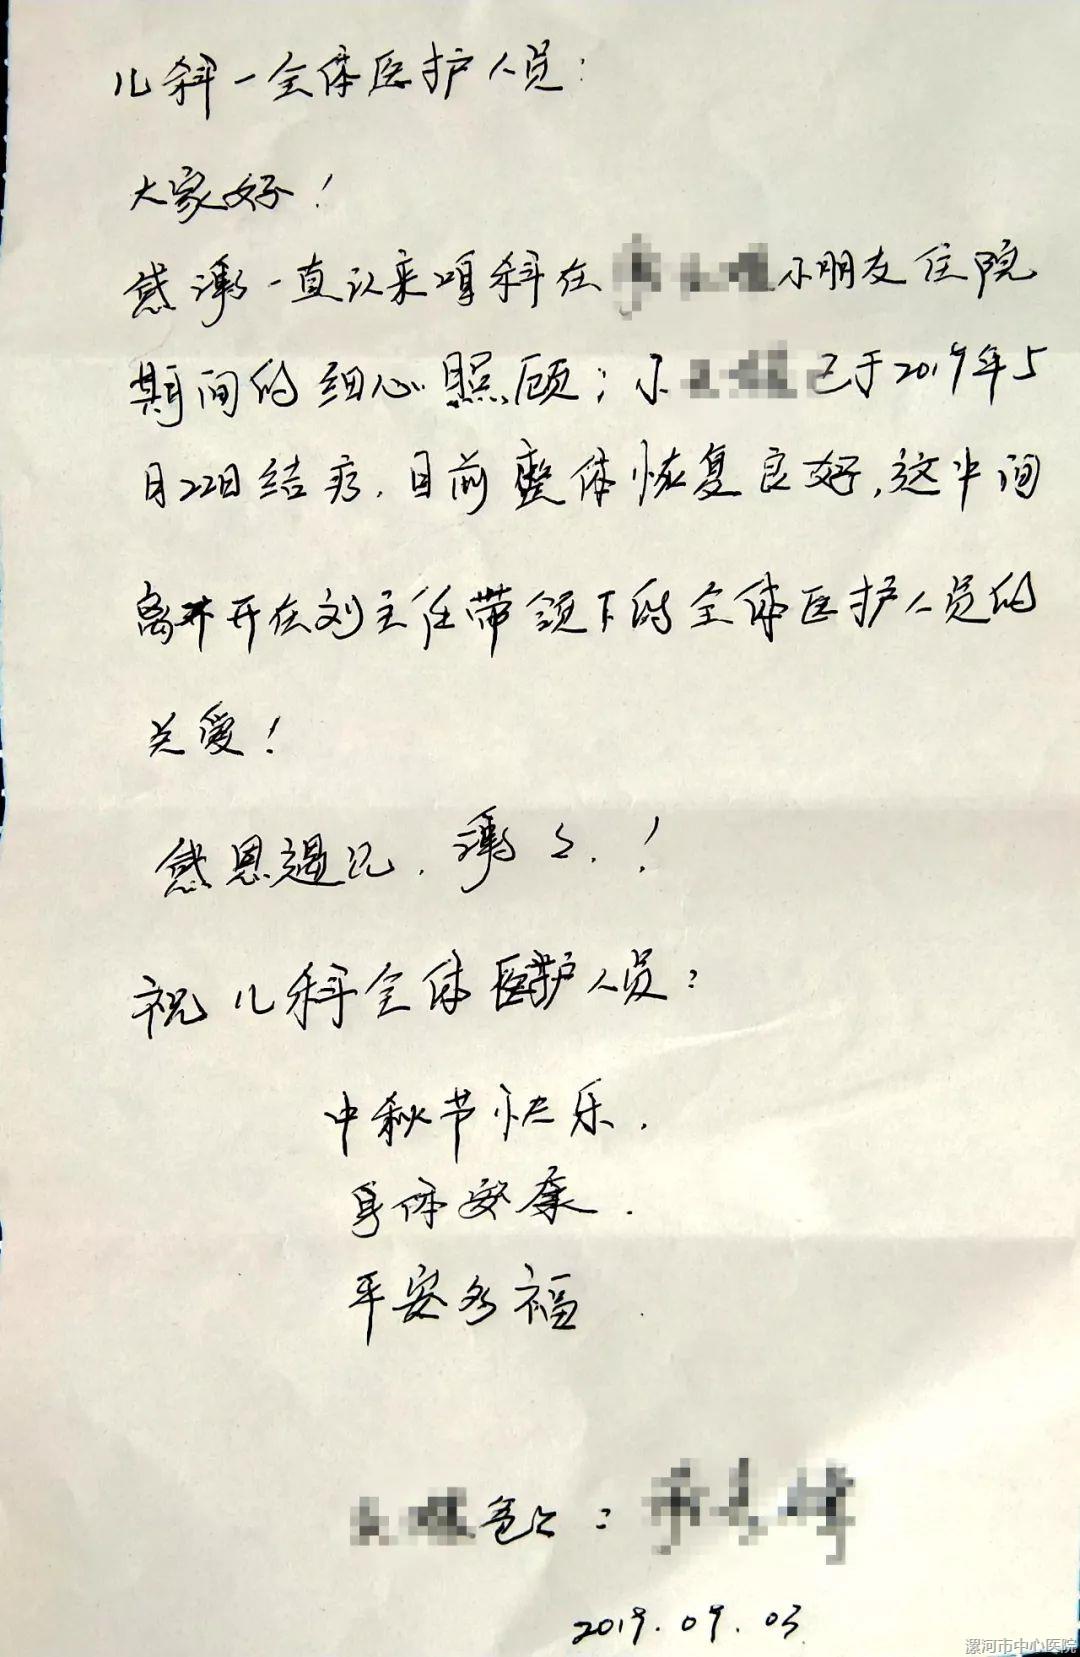 儿科一全体医护人员:
大家好!
感谢一直以来咱科在小朋友住院
期间的细心照顾;小已于2019年5
月22日结疗.目前整体恢复良好,这中间
离不开在刘主任带领下的全体医护人员的
关爱!
感恩遇见.谢谢.!
祝儿科全体医护人员:
中秋节快乐.
身体安康.
平安多福.
爸爸:
2019.09.03
漯河市中心医院